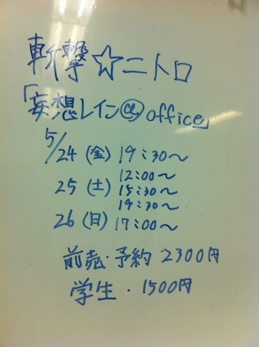 斬撃☆ニトロ
「妄想レイン@office」
5/24 (金) 19:30〜
12:00〜
25 (土) 15:30〜
19:30〜
26 (日) 17:00〜
前売・予約 2300円
学生・1500円